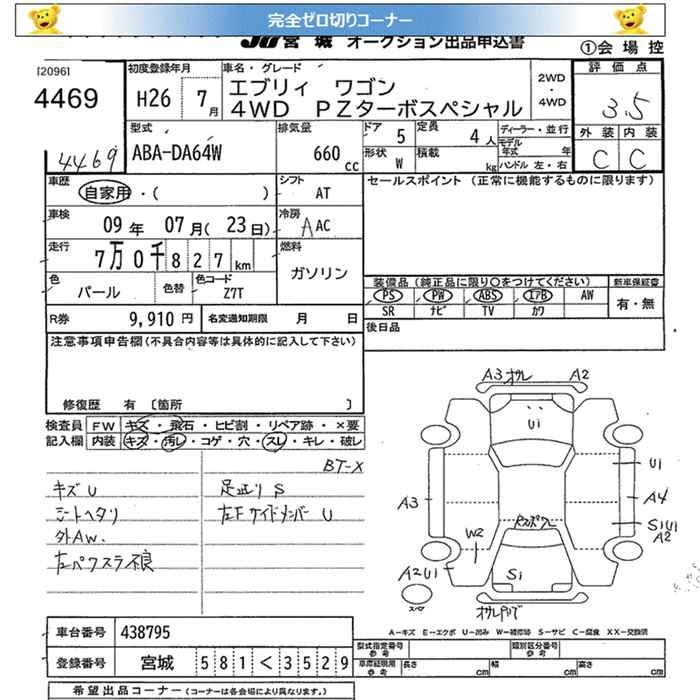 完全ゼロ切りコーナー
JU宮城 オークション出品申込書
①会場控
[2096]
4469
4469
初度登録年月
H26 7月
車名・グレード
エブリィ ワゴン
4WD PZターボスペシャル
2WD・4WD
評価点
3.5
外装 内装
C C
型式
ABA-DA64W
排気量
660 cc
ドア 5
定員 4人
形状 W
積載 kg
ディーラー・並行
モデル年式 年
ハンドル 左・右
車歴
自家用・( )
シフト
AT
セールスポイント (正常に機能するものに限ります)
車検
09年 07月(23日)
冷房
A AC
走行
7万0千827km
燃料
ガソリン
色
パール
色替
色コード
Z7T
装備品(純正品に限り○をつけてください)
新車保証書
PS PW ABS エアB AW
SR ナビ TV カワ
有・無
R券 9,910円
名変通知期限 月 日
後日品
注意事項申告欄(不具合内容等は具体的に記入して下さい)
修復歴 有 〔箇所 〕
検査員記入欄
FW キズ・飛石・ヒビ割・リペア跡・×要
内装 キズ・汚レ・コゲ・穴・スレ・キレ・破レ
BT-X
キズU
シートヘタリ
外AW.
左パワスラ不良
足廻りS
左Fサイドメンバー U
A3 A2
U1
U1
A3
A4
S1U1
A2
W2
A2U1
S1
スペア
A-キズ E-エクボ U-凹み W-補修跡 S-サビ C-腐食 XX-交換済
車台番号 438795
登録番号 宮城 581 く 3529
型式指定番号 参考
類別区分番号 参考
車庫証明用 参考
長さ cm 幅 cm 高さ cm
希望出品コーナー(コーナーは各会場により異なります。)